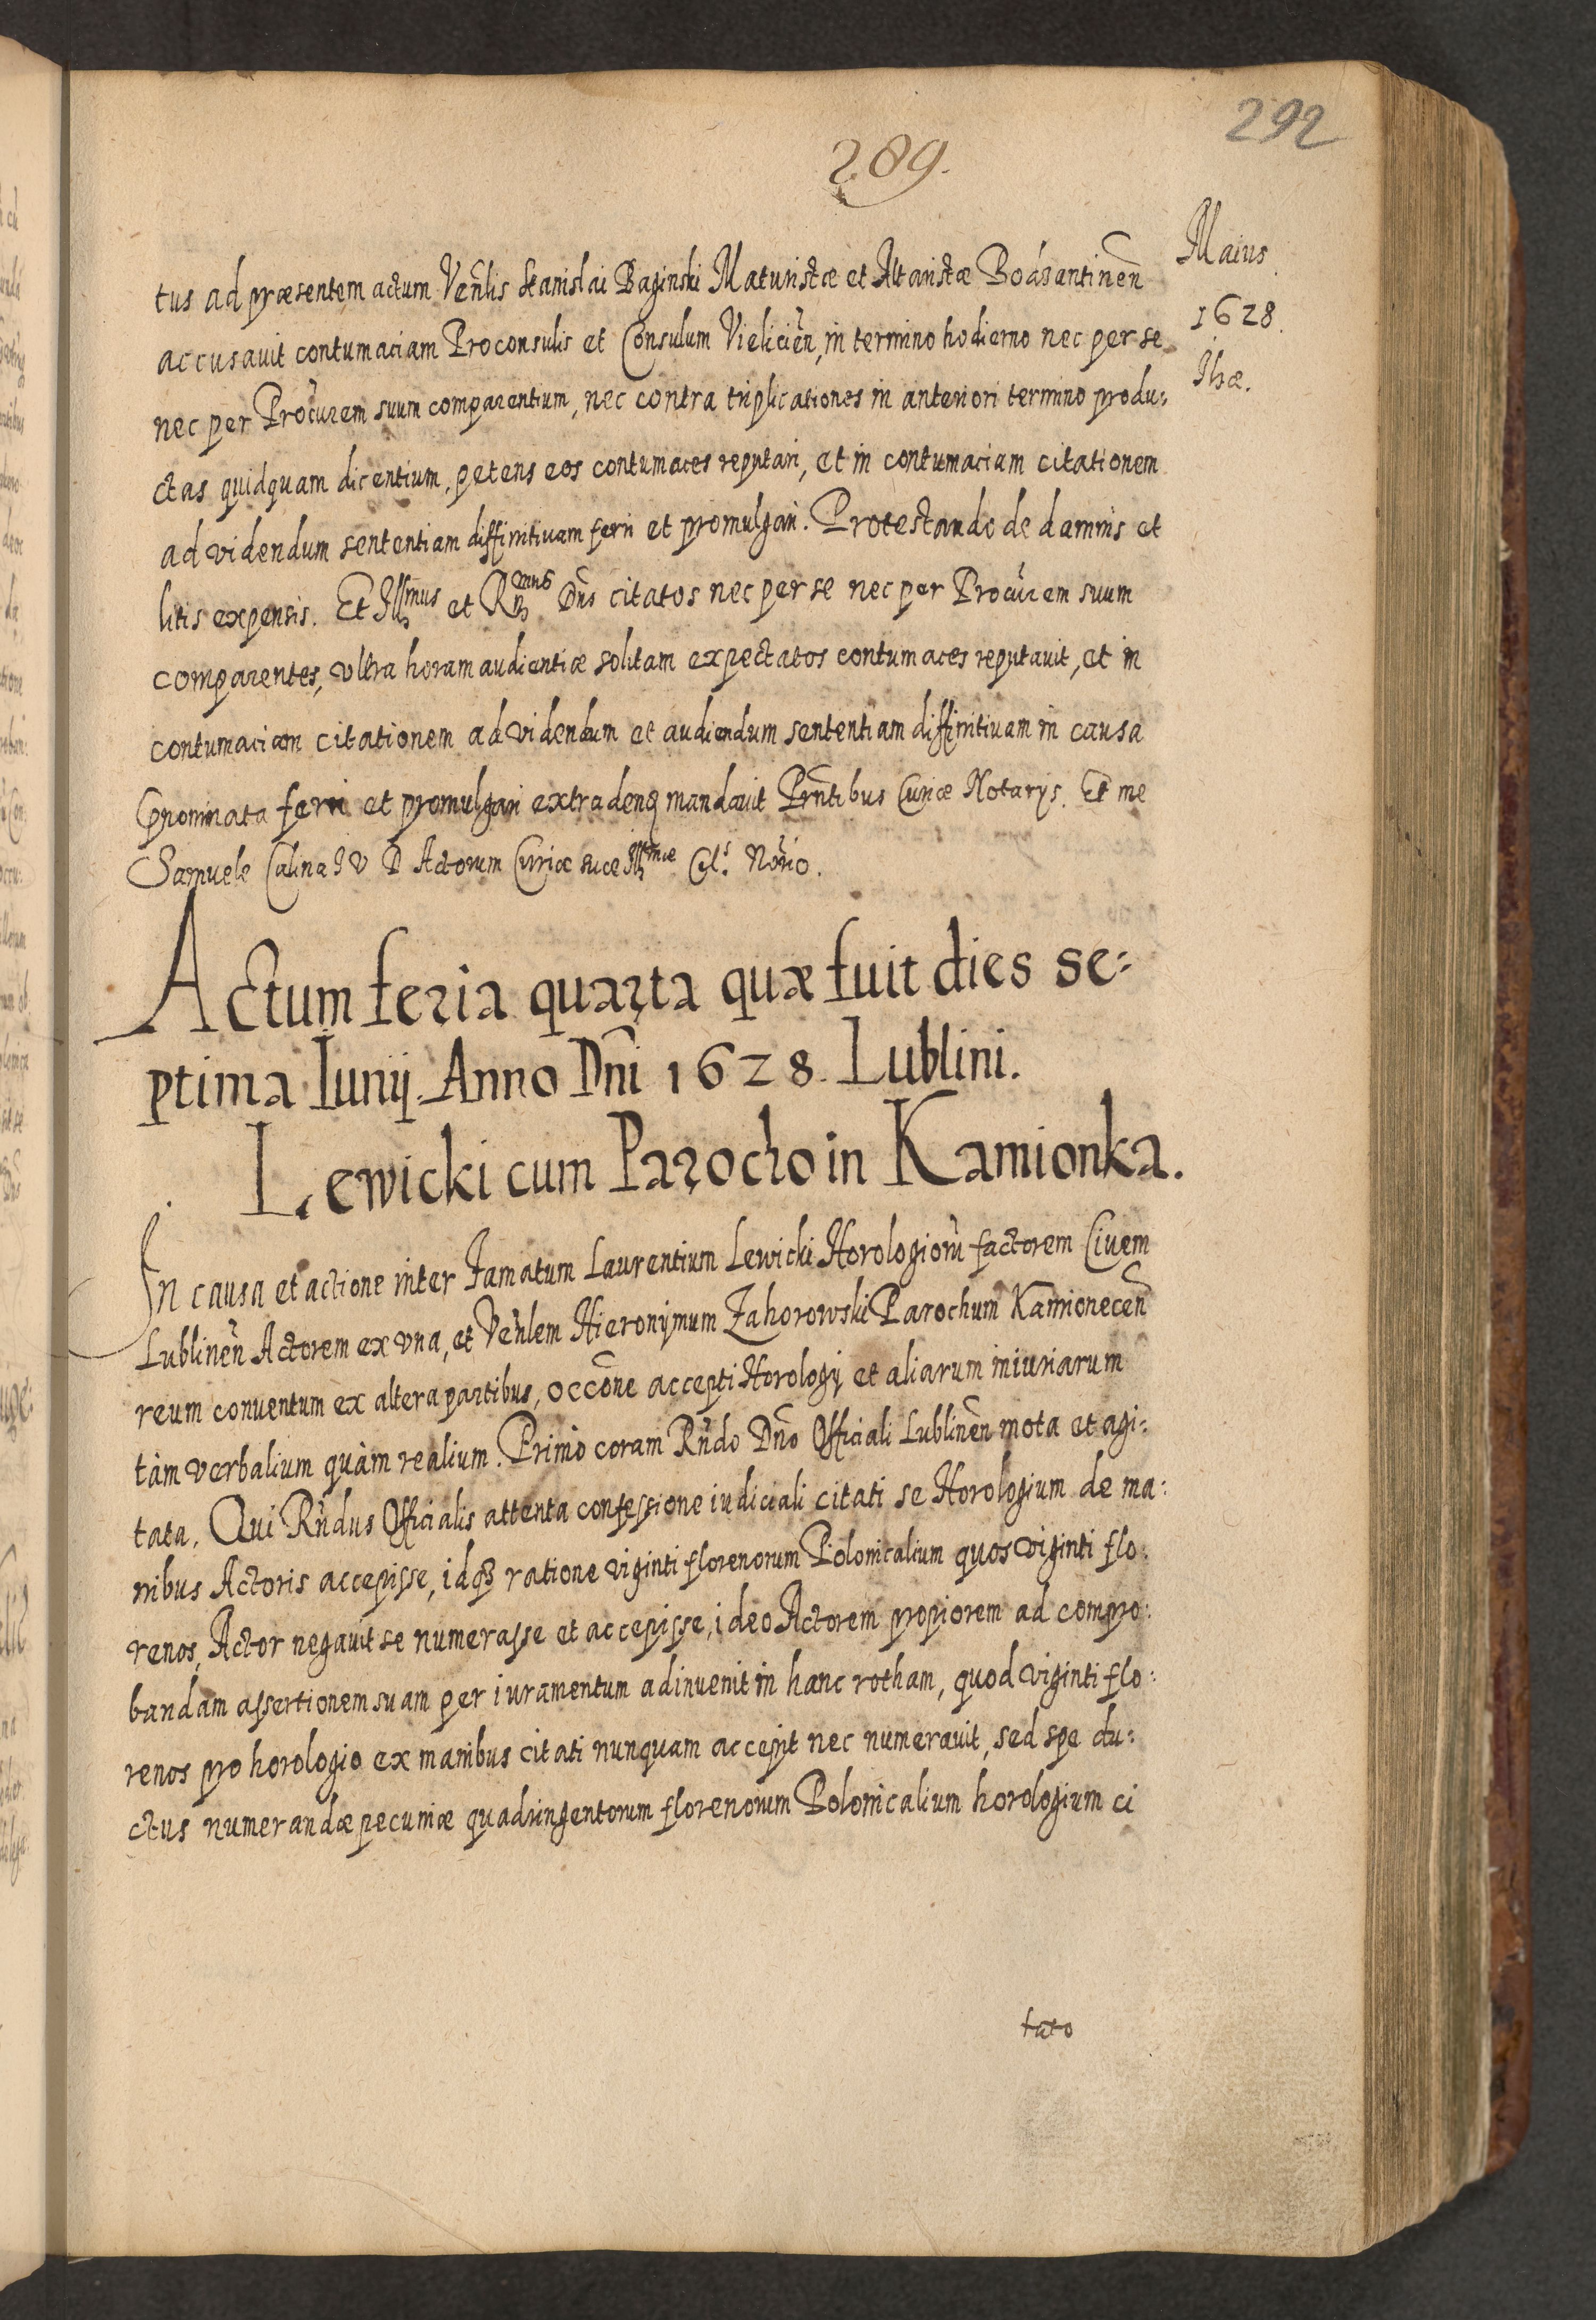 292
289.
Maius
1628.
Ilzæ.
tus ad præsentem actum Veñlis Stanislai Baginski Maturistæ et Altaristæ Boázantineñ
accusauit contumaciam Proconsulis et Consulum Vieliciẽn, in termino hodierno nec per se
nec per Procũrem suum comparentium, nec contra triplicationes in anteriori termino produ:
ctas quidquam dicentium, petens eos contumaces reputari, et in contumaciam citationem
ad videndum sententiam diffinitiuam ferri et promulgari. Protestando de damnis et
litis expensis. Et Illmus et Rmus Dñs citatos nec per se nec per Procũrem suum
comparentes, vltra horam audientiæ solitam expectatos contumaces reputauit, et in
contumaciam citationem ad videndum et audiendum sententiam diffinitiuam in causa
pnominata ferri et promulgari extradenq mandauit Prñtibus Curiæ Notarijs. Et me
Samuele Calina I V D Actorum Curiæ suæ Illmæ Cel. Norio.
Actum feria quarta quæ fuit dies se:
ptima Iunij. Anno Dñi 1628. Lublini.
Lewicki cum Parocho in Kamionka.
In causa et actione inter Famatum Laurentium Lewicki Horologiorũ factorem Ciuem
Lublineñ Actorem ex vna, et Veñlem Hieronymum Zahorowski Parochum Kamioneceñ
reum conuentum ex altera partibus, occõne accepti Horologij et aliarum iniuriarum
tàm verbalium quàm realium. Primò coram Rñdo Dño Officiali Lublineñ mota et agi:
tata. Qui Rñdus Officialis attenta confessione iudiciali citati se Horologium de ma:
nibus Actoris accepisse, idq3 ratione viginti florenorum Polonicalium quos viginti flo:
renos, Actor negauit se numerasse et accepisse, ideo Actorem propiorem ad compro:
bandam assertionem suam per iuramentum adinuenit in hanc rotham, quod viginti flo:
renos pro horologio ex manibus citati nunquam accepit nec numerauit, sed spe du:
ctus numerandæ pecuniæ quadringentorum florenorum Polonicalium horologium ci
tato